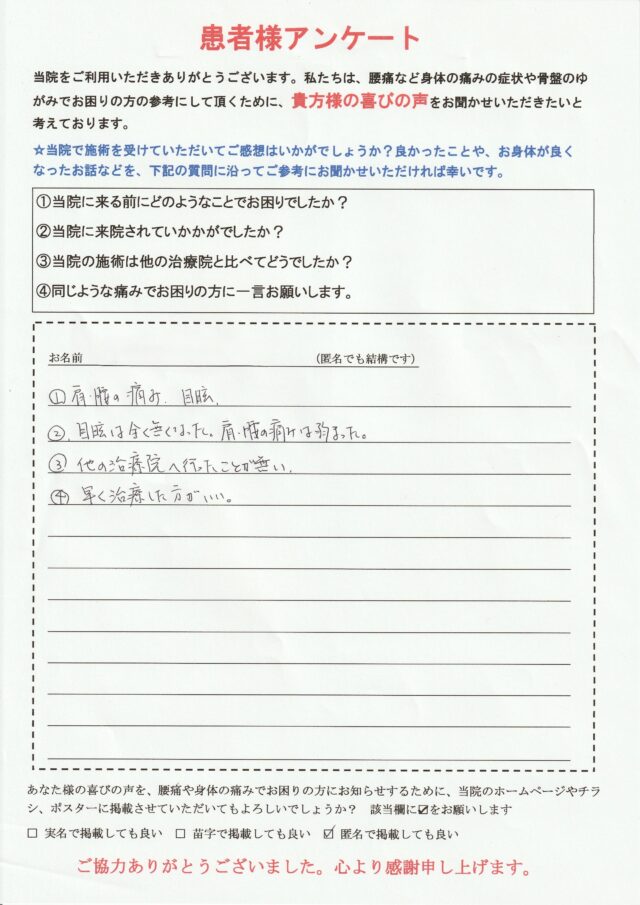 患者様アンケート
当院をご利用いただきありがとうございます。私たちは、腰痛など身体の痛みの症状や骨盤のゆ
がみでお困りの方の参考にして頂くために、貴方様の喜びの声をお聞かせいただきたいと
考えております。
☆当院で施術を受けていただいてご感想はいかがでしょうか？良かったことや、お身体が良く
なったお話などを、下記の質問に沿ってご参考にお聞かせいただければ幸いです。
①当院に来る前にどのようなことでお困りでしたか？
②当院に来院されていかかがでしたか？
③当院の施術は他の治療院と比べてどうでしたか？
④同じような痛みでお困りの方に一言お願いします。
お名前 （匿名でも結構です）
① 肩・腰の痛み、目眩、
②、目眩は全く無くなった。肩・腰の痛みは弱まった。
③ 他の治療院へ行ったことが無い、
④ 早く治療した方がいい。
あなた様の喜びの声を、腰痛や身体の痛みでお困りの方にお知らせするために、当院のホームページやチラ
シ、ポスターに掲載させていただいてもよろしいでしょうか？ 該当欄に☑をお願いします
☐ 実名で掲載しても良い ☐ 苗字で掲載しても良い ☑ 匿名で掲載しても良い
ご協力ありがとうございました。心より感謝申し上げます。